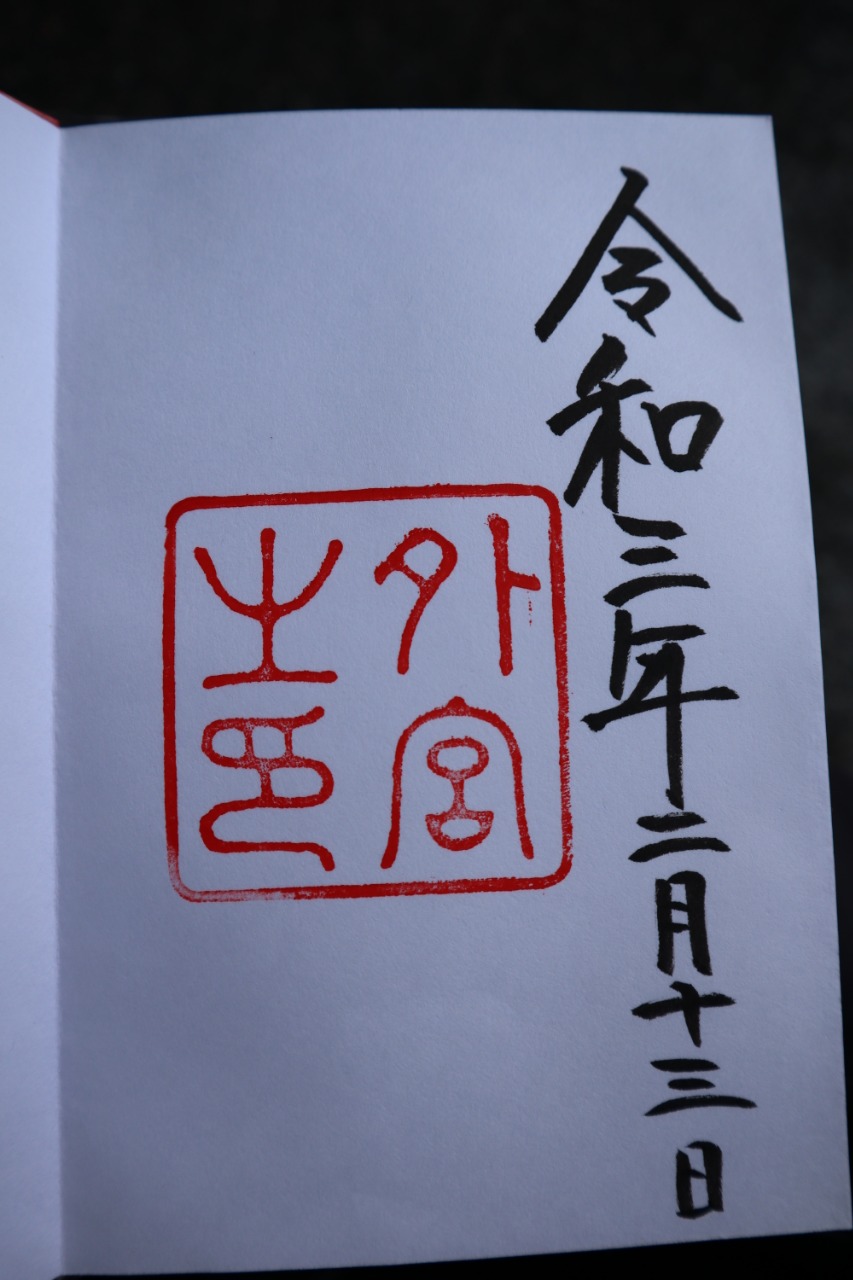 令和三年二月十三日
外宮
之印